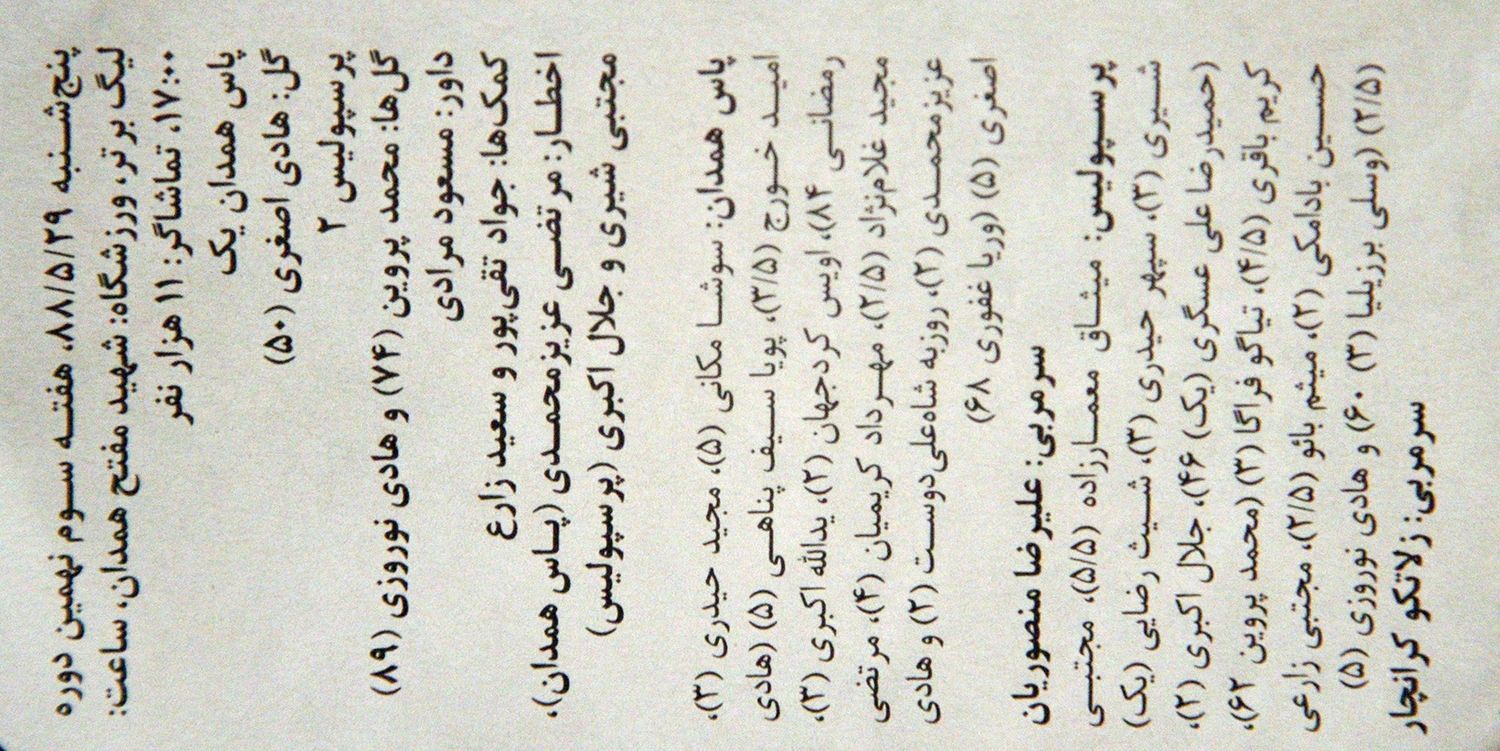 پنج‌شنبه ۸۸/۵/۲۹، هفته سوم نهمین دوره
لیگ برتر، ورزشگاه: شهید مفتح همدان، ساعت:
۱۷:۰۰، تماشاگر: ۱۱ هزار نفر
پاس همدان یک
گل: هادی اصغری (۵۰)
پرسپولیس ۲
گل‌ها: محمد پروین (۷۴) و هادی نوروزی (۸۹)
داور: مسعود مرادی
کمک‌ها: جواد تقی‌پور و سعید زارع
اخطار: مرتضی عزیزمحمدی (پاس همدان)،
مجتبی شیری و جلال اکبری (پرسپولیس)
پاس همدان: سوشا مکانی (۵)، مجید حیدری (۳)،
امید خورج (۳/۵)، پویا سیف پناهی (۵) (هادی
رمضانی ۸۴)، اویس کردجهان (۲)، یدالله اکبری (۳)،
مجید غلام‌نژاد (۲/۵)، مهرداد کریمیان (۴)، مرتضی
عزیزمحمدی (۲)، روزبه شاه‌علی‌دوست (۲) و هادی
اصغری (۵) (وریا غفوری ۶۸)
سرمربی: علیرضا منصوریان
پرسپولیس: میثاق معمارزاده (۵/۵)، مجتبی
شیری (۳)، سپهر حیدری (۳)، شیث رضایی (یک)
(حمیدرضا علی عسگری (یک) ۴۶)، جلال اکبری (۲)،
کریم باقری (۴/۵)، تیاگو فراگا (۳) (محمد پروین ۶۲)،
حسین بادامکی (۲)، میثم بائو (۲/۵)، مجتبی زارعی
(۲/۵) (وسلی برزیلیا (۳) ۶۰) و هادی نوروزی (۵)
سرمربی: زلاتکو کرانچار